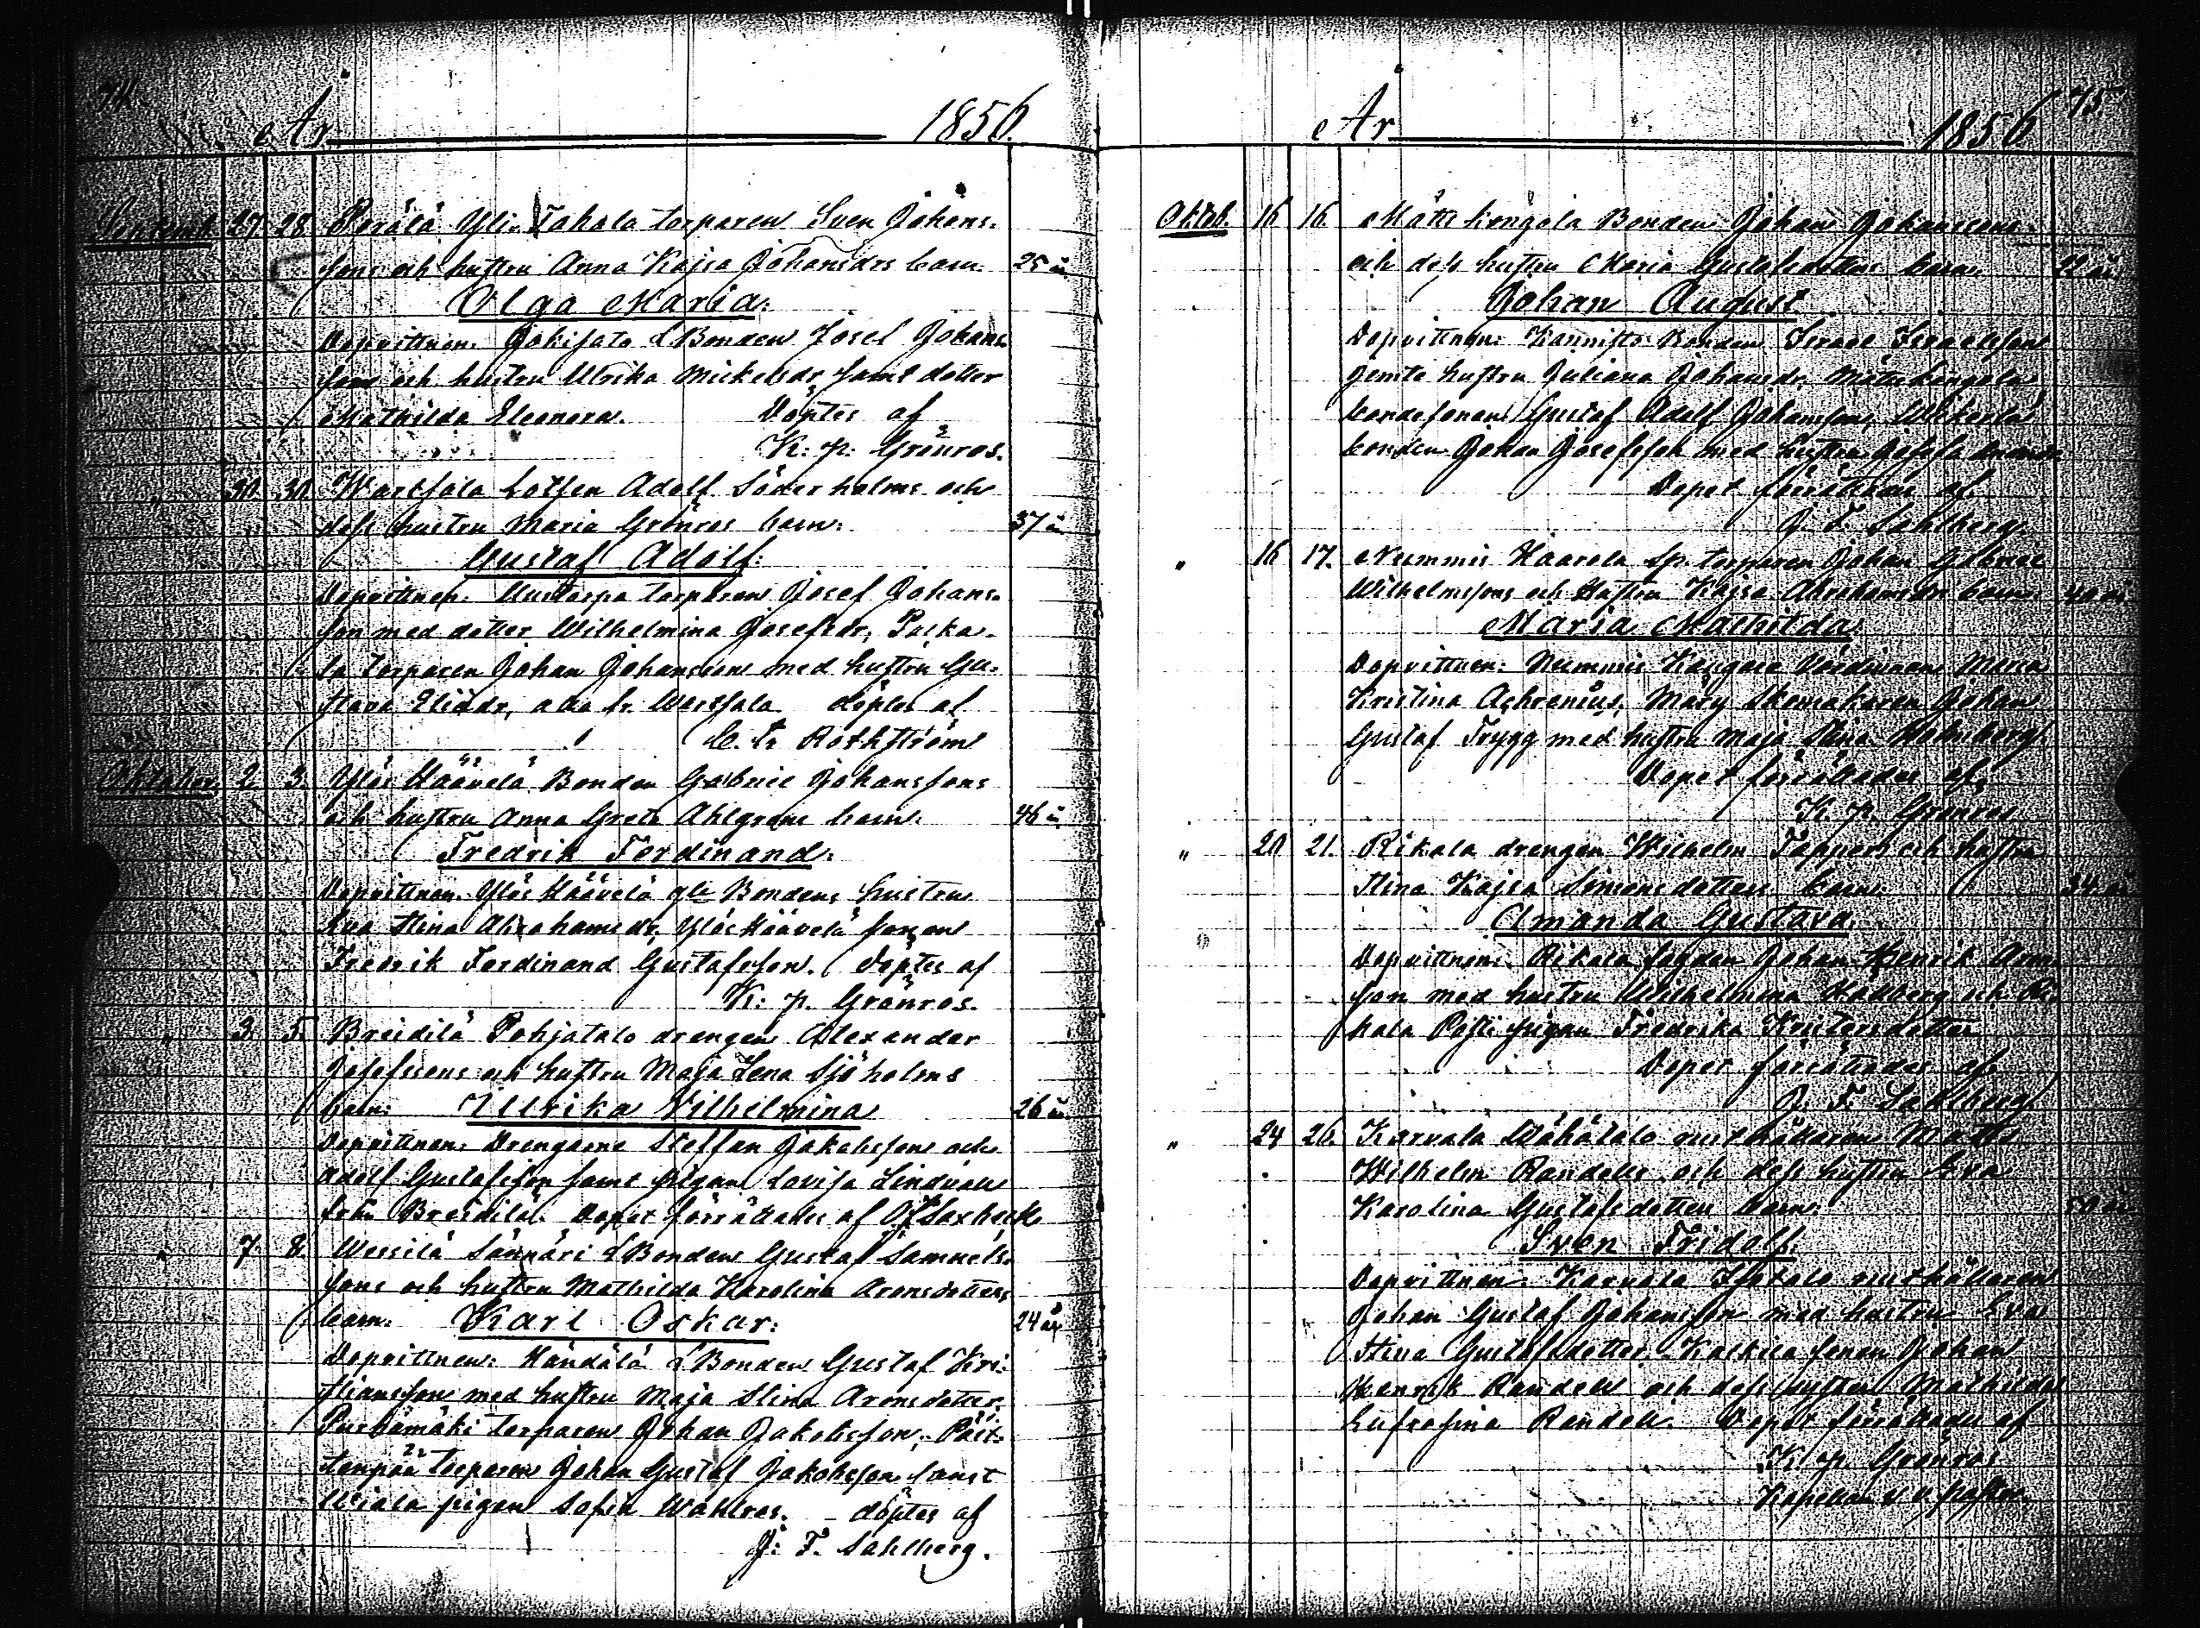 74.
År 1856.
Septemb. 27 28. Perälä Yli Tahala torparen Sven Johans-
sons och hustru Anna Kajsa Johansdrs barn. 25 år
Olga Maria.
Dopvittnen: Jokisato LBonden Josef Johans-
sons och hustru Ulrika Mickelsdr samt dotter
Mathilda Eleonora. Döptes af
K: p: Grönros.
" 30 30 Wartsala Lotsen Adolf Söderholms och
dess hustru Maria Grönros barn: 37 år
Gustaf Adolf:
Dopvittnen: torparen Josef Johans-
son med dotter Wilhelmina Josefsdr,
la torparen Johan Johansson med hustru Gu-
stava Eliædr, alla fr. Wartsala döptes af
Rothström
Oktober. 2 3. Ylös Häävelä Bonden Gabriel Johanssons
och hustru Anna Greta Ahlgrens barn. 46 år
Fredrik Ferdinand:
Dopvittnen. Ylös Häävelä gli Bondens hustru
Eva Stina Abrahamsdr, Ylös Häävelä sonen
Fredrik Ferdinand Gustafsson. Döptes af
K: p. Grönros.
" 3. 5. Breidilä Pohjatalo drengen Alexander
Josefssons och hustru Maja Lena Sjöholms
barn: Ullrika Vilhelmina 26 år
Dopvittnen: Drengarne Steffan Jakobsson och
Adolf Gustafsson samt pigan Lovisa Lindvall
från Breidilä. Dopet förrättades af
" 7. 8. Wessilä Sännäri LBonden Gustaf Samuels-
sons och hustru Mathilda Karolina Aronsdotters
barn: Karl Oskar: 24 år
Dopvittnen: Händälä LBonden Gustaf Kri-
stiansson med hustru Maja Stina Aronsdotter,
torparen Johan Jakobsson, Päit-
torparen Johan Gustaf Jakobsson samt
pigan Sofia Wahlros. - döptes af
J: F. Sahlberg.
75
År 1856
Oktob. 16 16. Bonden Johan Johanssons
och dess hustru Maria Gustafsdotters barn. 22 år
Johan August
Dopvittnen: Kannisto Bonden Israel Israelsson
jemte hustru Juliana Johansdr
bondesonen Gustaf Adolf Johansson,
bonden Johan Josefsson med hustru
Dopet förrättades af
J. F. Sahlberg
" 16 17. Nummis Haarola Sp. torparen Johan Gabriel
Wilhelmssons och Hustru Kajsa Abrahamsdrs barn. 40 år
Maria Mathilda
Dopvittnen: Nummis Maria
Kristina Achrenius, Skomakaren Johan
Gustaf Trygg med hustru Maja Stina Holmberg
Dopet förrättades af,
K. p. Grönros
" 20 21. Rikala drengen Wilhelm och hustru
Stina Kajsa Simonsdotters barn. 34 år
Amanda Gustava.
Dopvittnen. Rikala Johan Henrik
son med hustru Wilhelmina och Ri-
kala pigan Fredrika Kristersdotter
Dopet förrättades af,
J. F. Sahlberg
" 24 26. Karvala Wähätalo rusthållaren Matts
Wilhelm Randells och dess hustru Eva
Karolina Gustafsdotters barn:
Sven Fridolf.
Dopvittnen: Karvala Isotalo rusthållaren
Johan Gustaf Johansson med hustru Eva
Stina Gustafsdotter, sonen Johan
Henrik Randell och dess syster Mathilda
Eufrosina Randell. Dopet förrättades af
K. p. Grönros
Kapellan v. v. pastor.